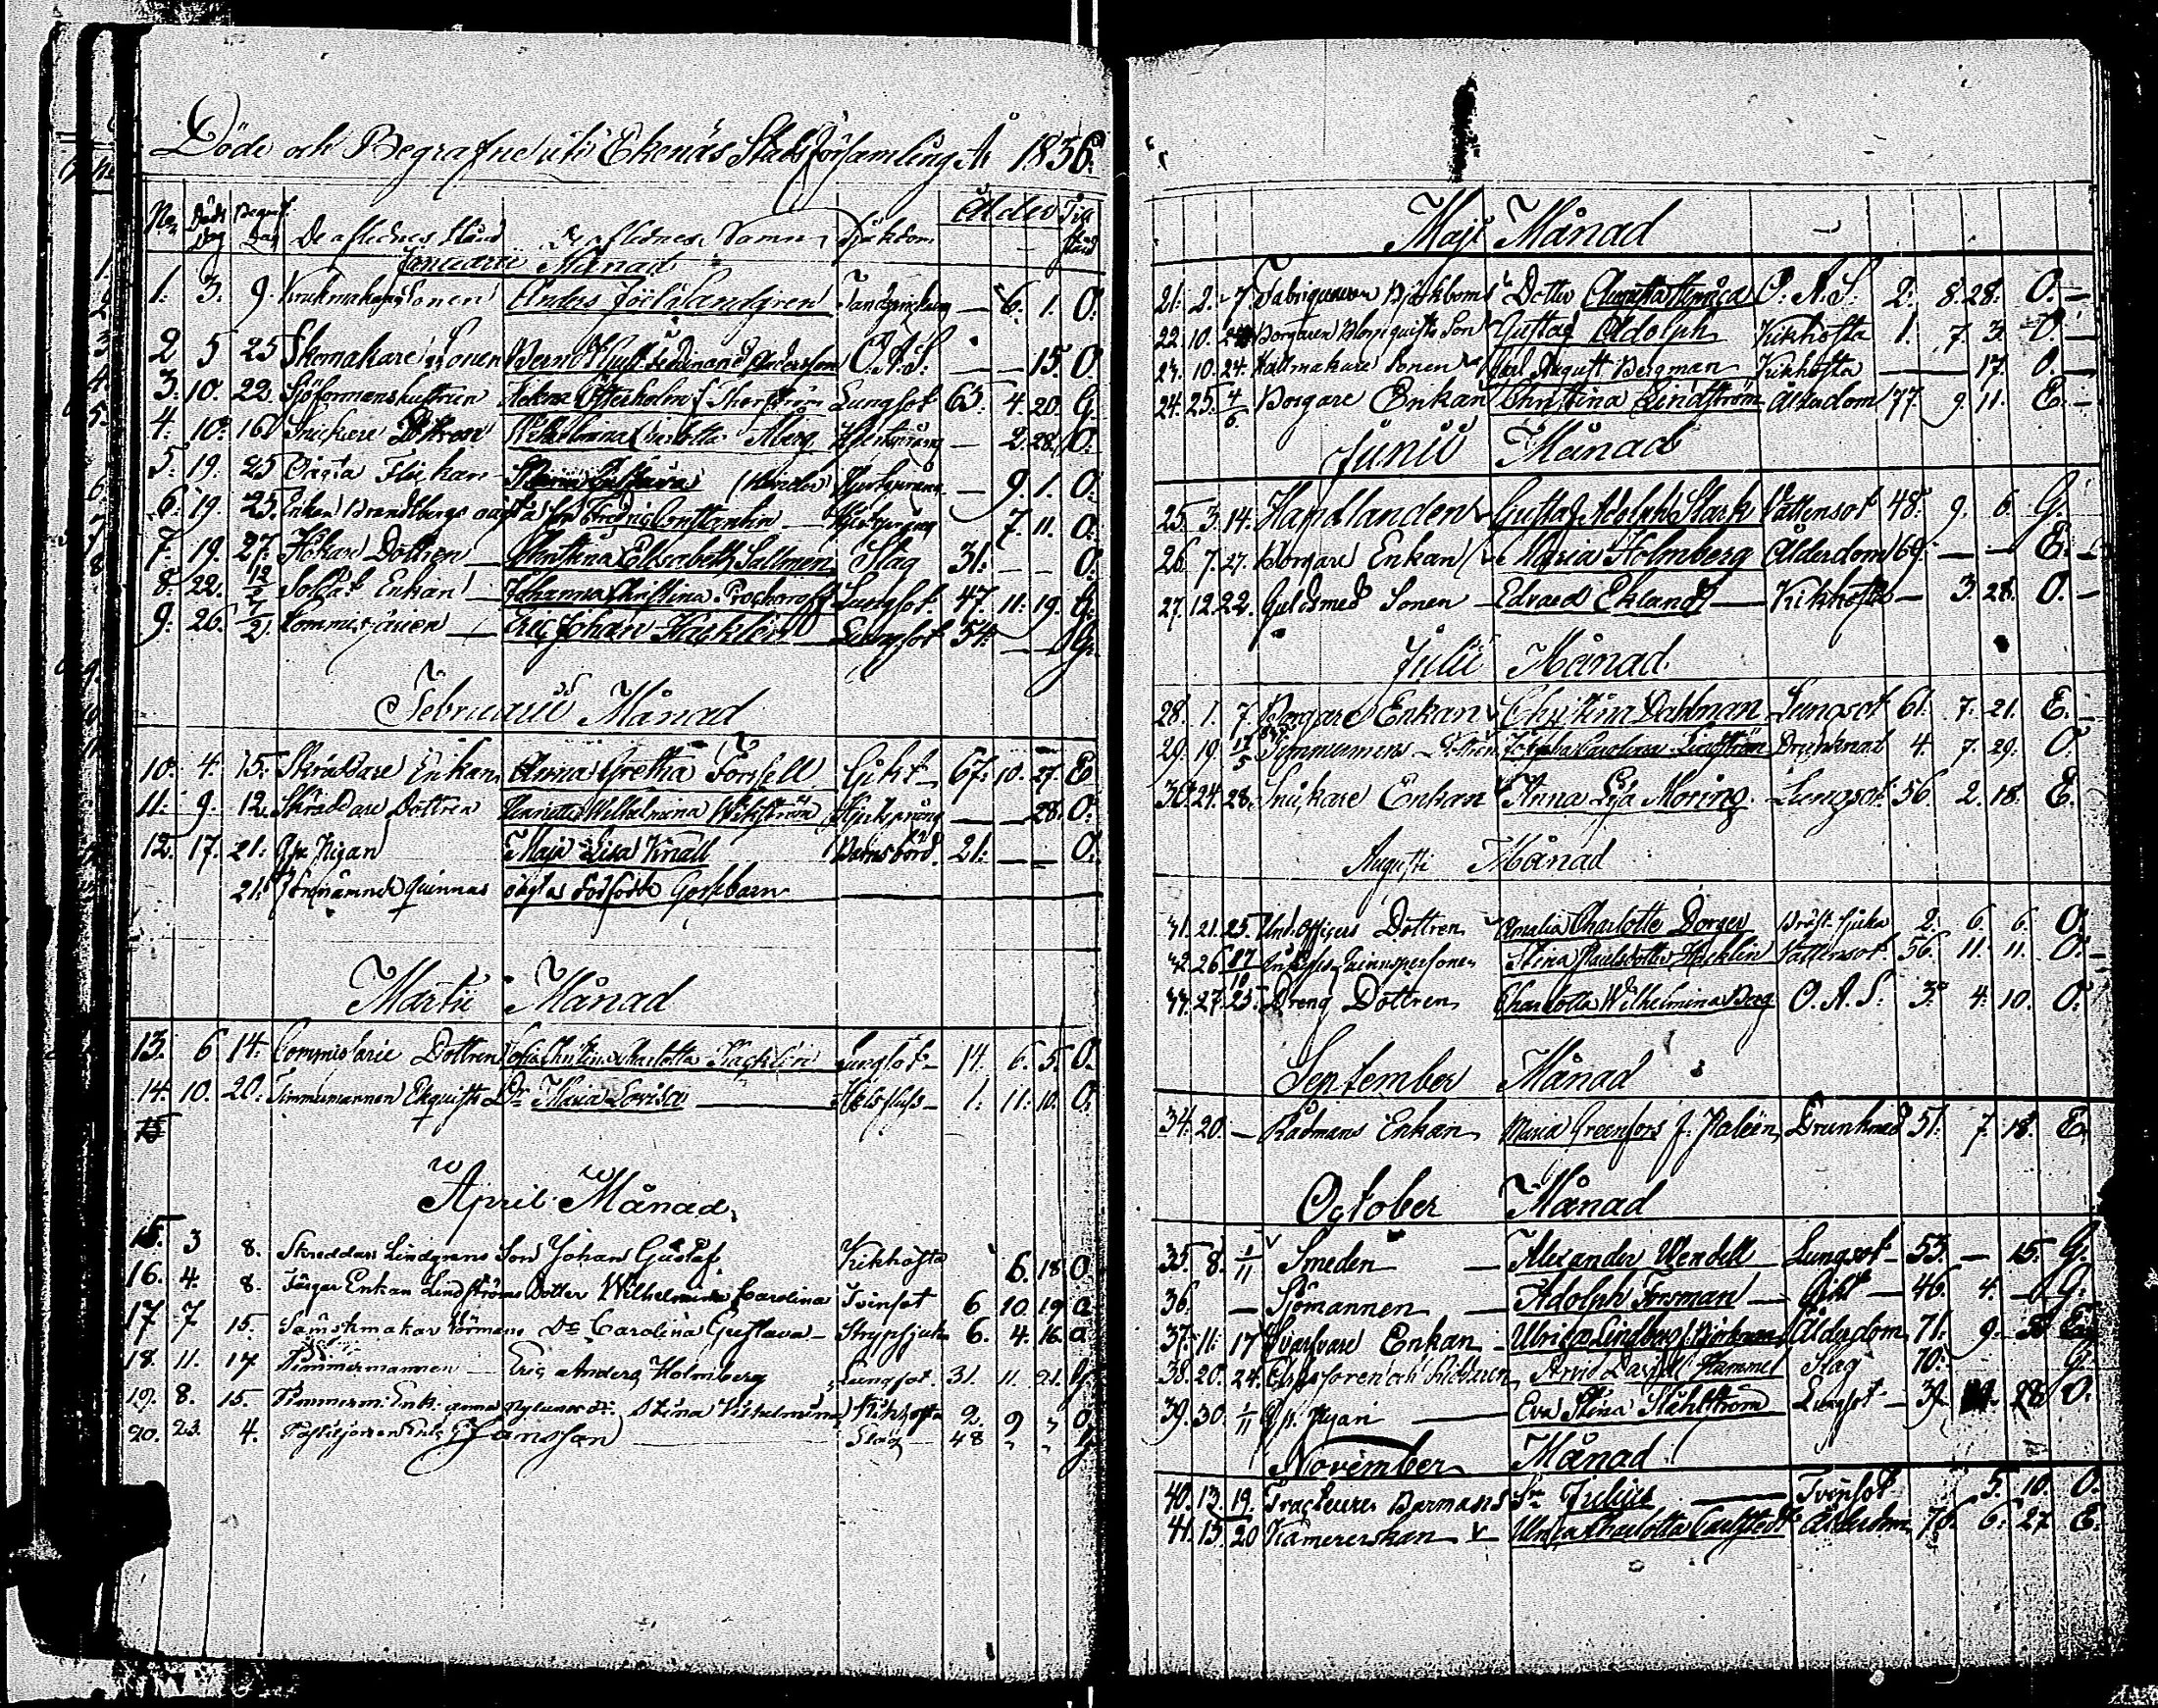 Döde och Begrafne uti Ekenäs Stads församling År 1836.
No Döds Dag Begraf. Dag De aflednes Stånd De aflednes Namn Sjukdom Ålder Till stånd
Januarii Månad
1. 3. 9. Sonen Anders 6. 1. O.
2 5 25 Skomakare Sonen Bernd Ferdinand O.A.S. — — 15. O.
3. 10. 22. Lungsot 65. 4. 20. G.
4. 10. 16. Snickare Wilhelmina Charlotta Åberg Hjertsprång — 2. 28. O.
5. 19. 25 Oägta Flickan Hjertsprång — 9. 1. O.
6. 19. 25. Enkan Brandtbergs oägta Son Fredric Constantin Hjertsprång 7. 11. O.
7. 19. 27. Dottren Christina Elisabeth Sallmén Slag 31. — — O.
8. 22. 12/2 Soldat Enkan Johanna Christina Prochoroff Lungsot 47. 11. 19. G.
9. 26. 7/2 Commissarien Eric Johan Hacklin Lungsot 54. — — G.
Februarii Månad
10. 4. 15. Skräddare Enkan Anna Gretha Forssell Gikt 67. 10. 27. E
11. 9. 12. Skräddare Dottren Henrietta Wilhelmina Wikström Hjertsprång — — 28. O.
12. 17. 21. Pigan Maja Lisa Knall Barnsbörd 21. — — O.
21. Förenämnde Quinnas oägta dödfödde Gossebarn
Martii Månad
13. 6 14. Commissarie Dottren Sofia Christina Charlotta Hacklin Lungsot 14. 6. 5. O.
14. 10. 20. Timmermannen Ekquists Dr Maria Lovisa 1. 11. 10. O.
15
April Månad
15. 3 8. Skreddare Lindgrens Son Johan Gustaf Kikhosta 6. 18 O
16. 4. 8. Enkan Lindströms Dotter Wilhelmina Carolina Tvinsot 6 10 19 O
17 7 15. Dr Carolina Gustava Strypsjuka 6. 4. 16. O
18. 11. 17 Timmermannen Eric Anders Holmberg Lungsot. 31. 11. 21. G.
19. 8. 15. Timmerm. Enk. Anna Nylunds dr. Stina Vilhelmina Kikhosta 2. 9 O
20. 23. 4. Jansson Slag 48 G
Maji Månad
21. 2. 7 Fabriqueuren Björkboms Dotter O.A.S. 2. 8. 28. O.
22. 10. 24 Borgaren Blomquists Son Gustaf Adolph Kikhosta 1. 7. 3. O.
23. 10. 24. Sonen Carl August Bergman Kikhosta — 17. O.
24. 25. 4/6 Borgare Enkan Christina Lindström Ålderdom 77. 9. 11. E.
Junii Månad
25. 3. 14. Handlanden Gustaf Adolph Stark Vattensot 48. 9. 6. G.
26. 7. 27. Borgare Enkan Maria Holmberg Ålderdom 69. — — E.
27. 12. 22. Guldsmed Sonen Edvard Eklund Kikhosta — 3. 28. O.
Julii Månad
28. 1. 7. Borgare Enkan Christina Dahlman Lungsot 61. 7. 21. E.
29. 19. Timmermans Dottren Carolina Lindström Drunknad 4. 7. 29. O.
30. 24. 28. Snickare Enkan Anna Moring Lungsot 56. 2. 18. E.
Augusti Månad
31. 21. 25. Und.officers Dottren Amalia Charlotte Dorger Bröst sjuka 2. 6. 6. O.
32. 26 Quinnspersonen Stina Hacklin Vattensot 56. 11. 11. O.
33. 27. 25. Dreng Dottren Charlotta Wilhelmina Berg O.A.S. 3. 4. 10. O.
September Månad
34. 20. — Rådmans Enkan Maria Greenfors f. Drunknad 51. 7. 18. E.
October Månad
35. 8. 1/11 Smeden Alexander Wendell Lungsot 53. — 15. G.
36. — Sjömannen Adolph Forsman Gikt 46. 4. — G.
37. 11. 17 Svarfvare Enkan Ulrica Lindberg Ålderdom 71. 9. E
38. 20. 24. Arvid Hammel Slag 70. G.
39. 30. 1/11 Pigan Eva Stina Ståhlström Lungsot 28 O.
November Månad
40. 13. 19. Tracteuren Barmans Sn Julius Tvinsot 5. 10. O.
41. 15. 20 Kamererskan Ulrica Charlotta Carlstedt Ålderdom 76. 6. 27. E.